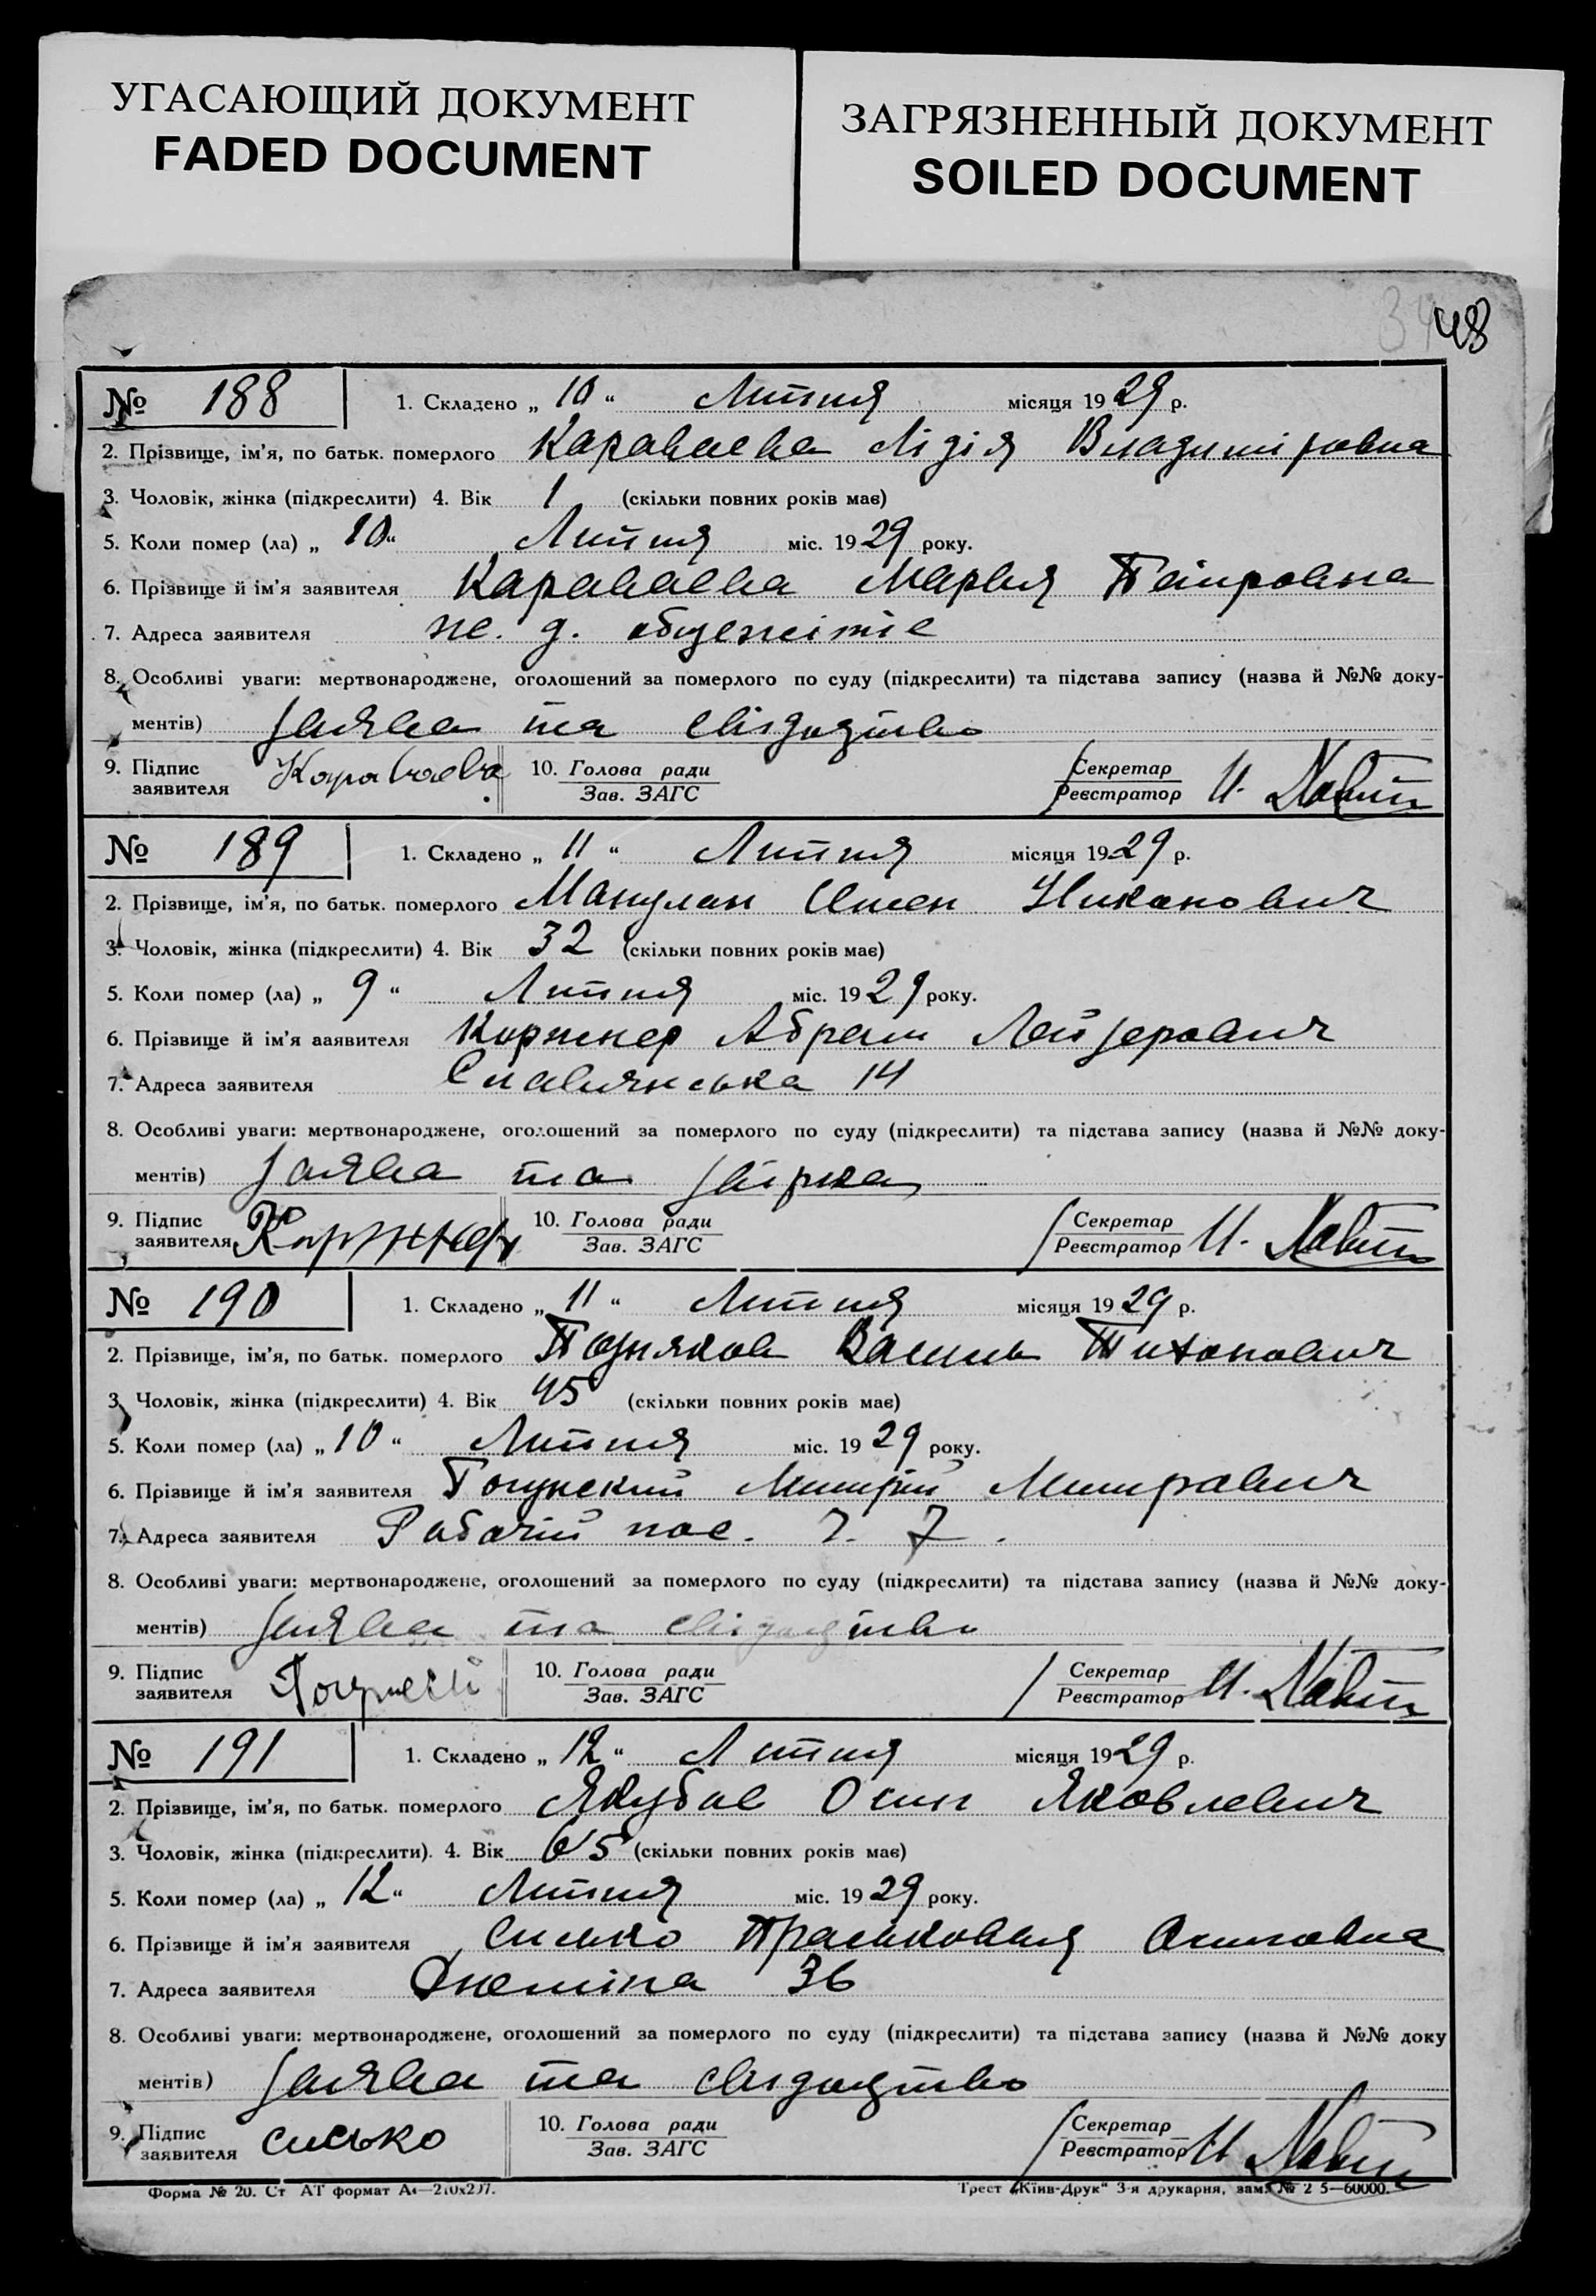 УГАСАЮЩИЙ ДОКУМЕНТ
FADED DOCUMENT
ЗАГРЯЗНЕННЫЙ ДОКУМЕНТ
SOILED DOCUMENT
48
№ 188 1. Складено „ 10 “ Липня місяця 1929 р.
2. Прізвище, ім’я, по батьк. померлого Караваева Лідія Владимировна
3. Чоловік, жінка (підкреслити) 4. Вік 1 (скільки повних років має)
5. Коли помер (ла) „ 10 “ Липня міс. 1929 року.
6. Прізвище й ім’я заявителя Караваева Мария Петровна
7. Адреса заявителя ж. д. общежітіе
8. Особливі уваги: мертвонароджене, оголошений за померлого по суду (підкреслити) та підстава запису (назва й №№ доку-
ментів) Заява та свідоцтво
9. Підпис заявителя Караваева 10. Голова ради Секретар
Зав. ЗАГС Реєстратор И.
№ 189 1. Складено „ 11 “ Липня місяця 1929 р.
2. Прізвище, ім’я, по батьк. померлого Никанович
3. Чоловік, жінка (підкреслити) 4. Вік 32 (скільки повних років має)
5. Коли помер (ла) „ 9 “ Липня міс. 1929 року.
6. Прізвище й ім’я заявителя Коржнер Абрам Лейзерович
7. Адреса заявителя Славянська 14
8. Особливі уваги: мертвонароджене, оголошений за померлого по суду (підкреслити) та підстава запису (назва й №№ доку-
ментів) Заява та
9. Підпис заявителя Коржнер 10. Голова ради Секретар
Зав. ЗАГС Реєстратор И.
№ 190 1. Складено „ 11 “ Липня місяця 1929 р.
2. Прізвище, ім’я, по батьк. померлого Позняков Василь Тихонович
3. Чоловік, жінка (підкреслити) 4. Вік 45 (скільки повних років має)
5. Коли помер (ла) „ 10 “ Липня міс. 1929 року.
6. Прізвище й ім’я заявителя
7. Адреса заявителя Рабочій пос. 7.
8. Особливі уваги: мертвонароджене, оголошений за померлого по суду (підкреслити) та підстава запису (назва й №№ доку-
ментів) Заява та свідоцтво
9. Підпис заявителя 10. Голова ради Секретар
Зав. ЗАГС Реєстратор И.
№ 191 1. Складено „ 12 “ Липня місяця 1929 р.
2. Прізвище, ім’я, по батьк. померлого Осип Яковлевич
3. Чоловік, жінка (підкреслити). 4. Вік 65 (скільки повних років має)
5. Коли помер (ла) „ 12 “ Липня міс. 1929 року.
6. Прізвище й ім’я заявителя Сисько Прасковья Осиповна
7. Адреса заявителя 36
8. Особливі уваги: мертвонароджене, оголошений за померлого по суду (підкреслити) та підстава запису (назва й №№ доку
ментів) Заява та свідоцтво
9. Підпис заявителя сисько 10. Голова ради Секретар
Зав. ЗАГС Реєстратор И.
Форма № 20. Ст АТ формат А4—210х297. Трест „Київ-Друк“ 3-я друкарня, зам. № 2 5—60000.